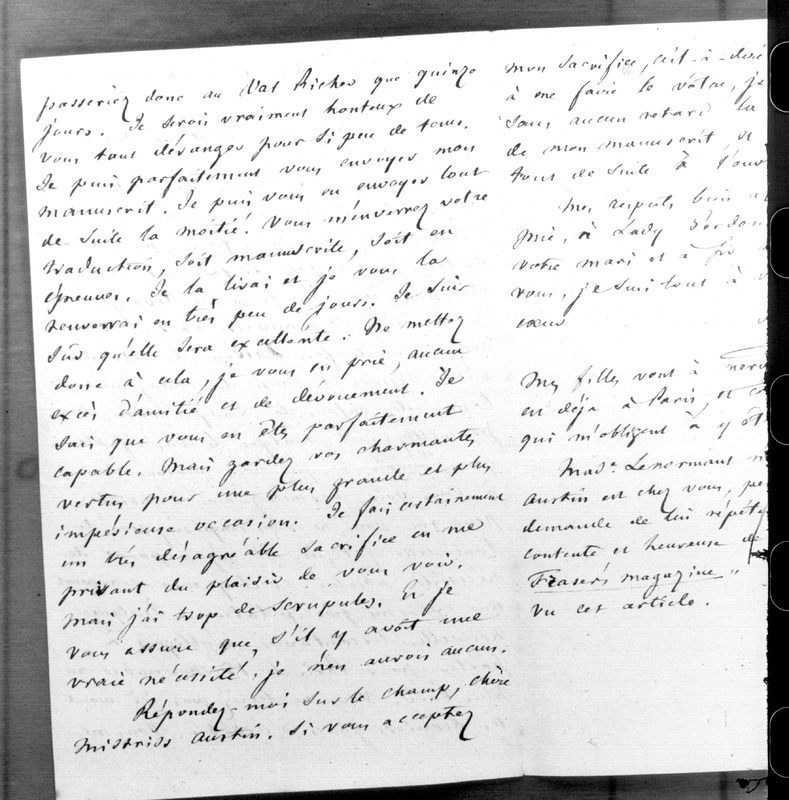 passeriez donc au Val Richer que quinze
jours. Je serois vraiment honteux de
vous tant déranger pour si peu de tems.
Je puis parfaitement vous envoyer mon
manuscrit. Je puis vous en envoyer tout
de suite la moitié. Vous m'enverrez votre
traduction, soit manuscrite, soit en
épreuves. Je la lirai et je vous la
renverrai en très peu de jours. Je suis
sûr qu'elle sera excellente. Ne mettez
donc à cela, je vous en prie, aucun
excès d'amitié et de dévouement. Je
sais que vous en êtes parfaitement
capable. Mais gardez vos charmantes
vertus pour une plus grande et plus
impérieuse occasion. Je fais certainement
un très désagréable sacrifice en me
privant du plaisir de vous voir.
Mais j'ai trop de scrupules. Et je
vous assure que, s'il y avoit une
vraie nécessité, je n'en aurois aucun.
Répondez-moi sur le champ, chère
Mistriss Austin. Si vous acceptez
mon sacrifice, c'est-à-dire
à me faire le vôtre, je
sans aucun retard la
de mon manuscrit, et
tout de suite à
Mes respects bien
prie, à Lady Gordon
votre mari et à
vous, je suis tout à
coeur
Mes filles vont à
en déjà à Paris, et
qui m'obligent à y
Mad.e Lenormant
Austin est chez vous,
demande de lui
contente et heureuse de
Fraser's magazine"
vu cet article.